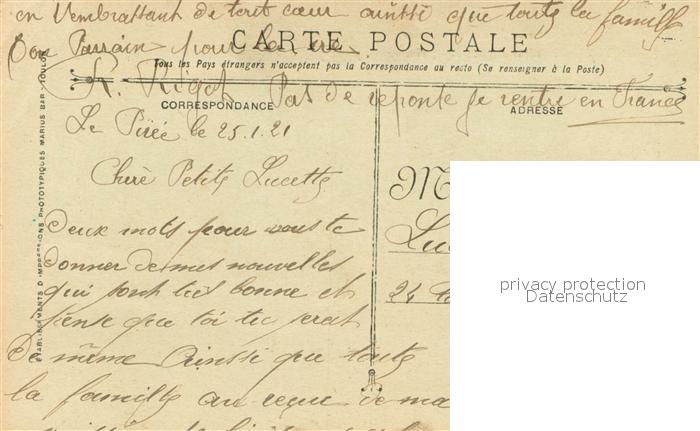 en t'embrassant de tout cœur ainssi que toute la famille
Bon Parrain pour la vie
CARTE POSTALE
Tous les Pays étrangers n'acceptent pas la Correspondance au recto (Se renseigner à la Poste)
Pas de reponse je rentre en France
CORRESPONDANCE
ADRESSE
Le Pirée le 25.1.21
Cherè Petite Lucette
Deux mots pour vous te
donner de mes nouvelles
qui sont très bonne et
pense que toi tu serat
De même ainssi que toute
la famille au reçu de ma
M
Luc
24
ETABLISSEMENTS D'IMPRESSIONS PHOTOTYPIQUES MARIUS BAR - TOULON
privacy protection
Datenschutz